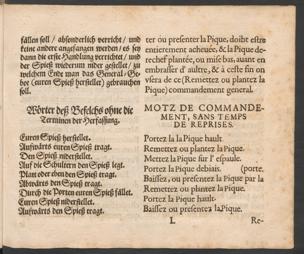 fällen soll / absonderlich verricht / und
keine andere angefangen werden / es sey
dann die erste Handlung verrichtet / und
der Spieß wiederum nider gestellet / zu
welchem Ende man das General-Ge-
bot (euren Spieß herstellet) gebrauchen
soll.
Wörter deß Befelchs ohne die
Terminen der Herfassung.
Euren Spieß herstellet.
Aufwärts euren Spieß tragt.
Den Spieß niderstellet.
Auf die Schultern den Spieß legt.
Platt oder eben den Spieß tragt.
Abwärts den Spieß tragt.
Durch die Porten euren Spieß fället.
Euren Spieß niderstellet.
Aufwärts den Spieß tragt.
ter ou presenter la Pique, doibt estre
entierement acheuée, & la Pique de-
rechef plantée, ou mise bas, auant en
embrasser d'aultre, & à ceste fin on
vsera de ce (Remettez ou plantez la
Pique) commandement general.
MOTZ DE COMMANDE-
MENT, SANS TEMPS
DE REPRISES.
Portez la la Pique hault
Remettez ou plantez la Pique.
Mettez la Pique sur l'espaule.
Portez la Pique debiais. (porte.
Baissez, ou presentez la Pique par la
Remettez ou plantez la Pique.
Portez la Pique hault.
Baissez ou presentez la Pique.
L Re-